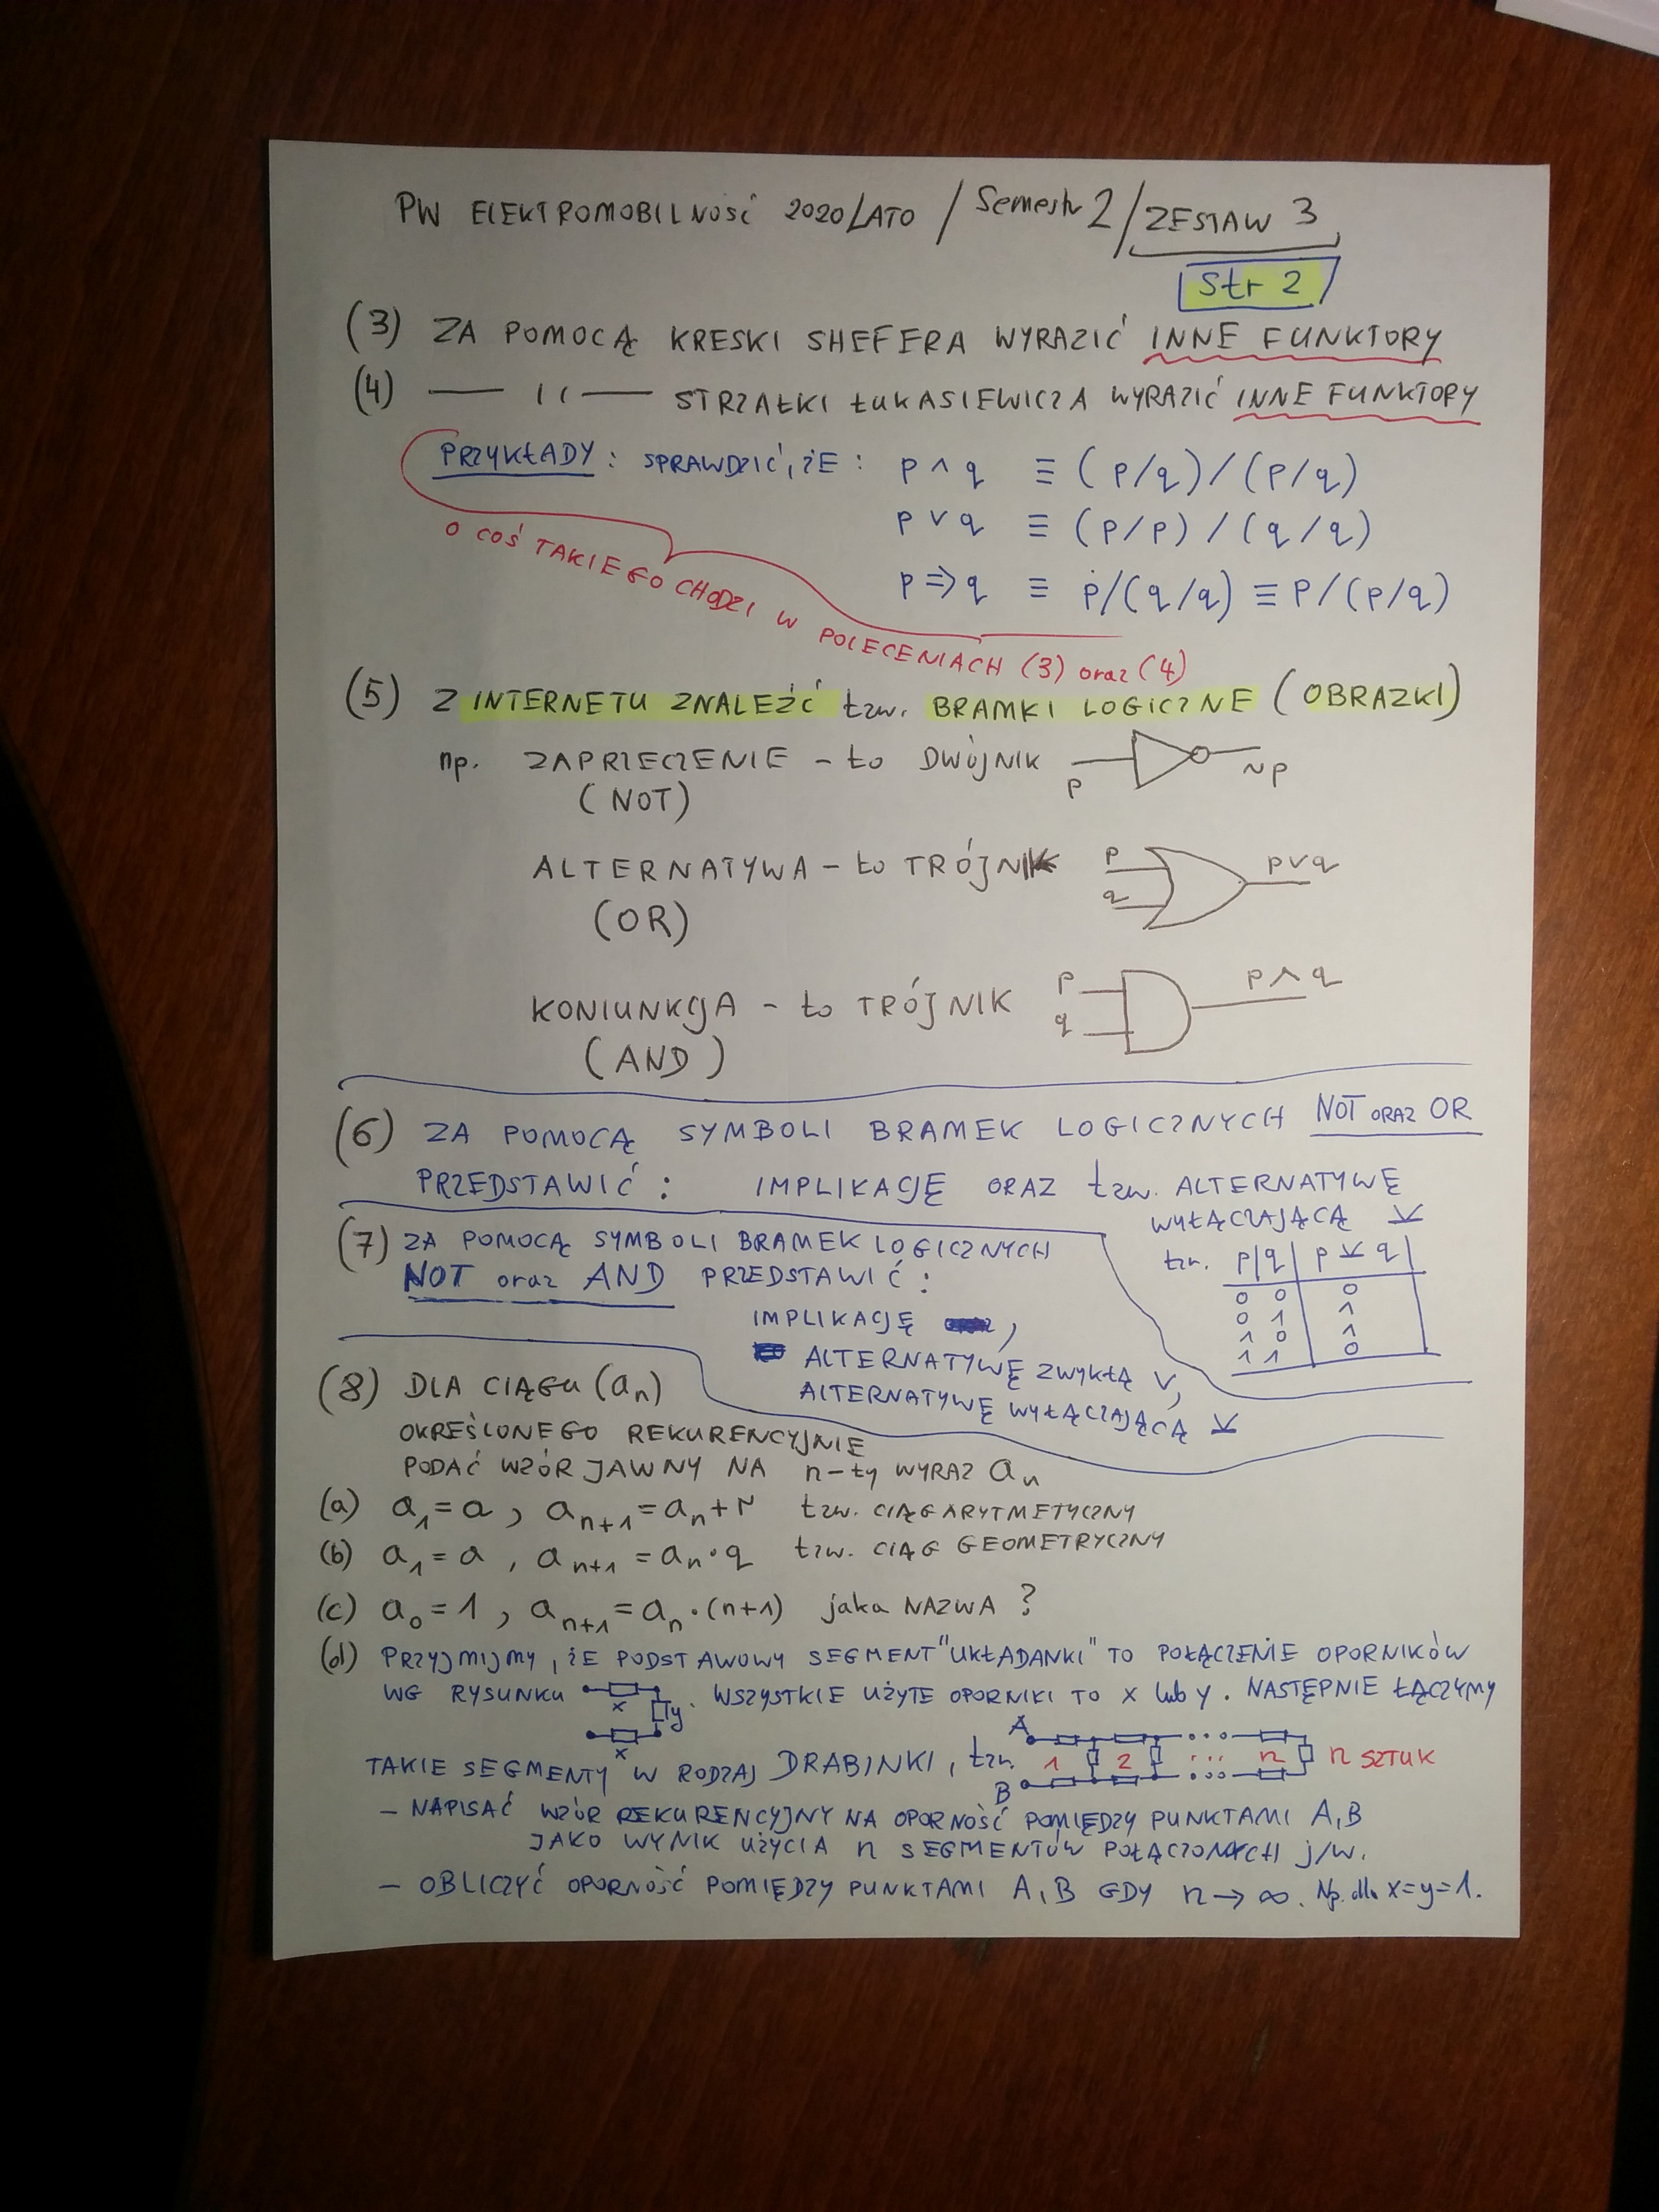 PW ELEKTROMOBILNOŚĆ 2020/LATO / Semestr 2 / ZESTAW 3
Str 2
(3) ZA POMOCĄ KRESKI SHEFERA WYRAZIĆ INNE FUNKTORY
(4) —— 〃 —— STRZAŁKI ŁUKASIEWICZA WYRAZIĆ INNE FUNKTORY
PRZYKŁADY: SPRAWDZIĆ, ŻE: p ∧ q ≡ (p/q)/(p/q)
p ∨ q ≡ (p/p)/(q/q)
p ⇒ q ≡ p/(q/q) ≡ p/(p/q)
O COŚ TAKIEGO CHODZI W POLECENIACH (3) oraz (4)
(5) Z INTERNETU ZNALEŹĆ tzw. BRAMKI LOGICZNE (OBRAZKI)
np. ZAPRZECZENIE - to DWÓJNIK p ~p
(NOT)
ALTERNATYWA - to TRÓJNIK p q p∨q
(OR)
KONIUNKCJA - to TRÓJNIK p q p∧q
(AND)
(6) ZA POMOCĄ SYMBOLI BRAMEK LOGICZNYCH NOT ORAZ OR
PRZEDSTAWIĆ: IMPLIKACJĘ ORAZ tzw. ALTERNATYWĘ
WYŁĄCZAJĄCĄ ⊻
tzn. p|q| p ⊻ q|
0 0 0
0 1 1
1 0 1
1 1 0
(7) ZA POMOCĄ SYMBOLI BRAMEK LOGICZNYCH
NOT oraz AND PRZEDSTAWIĆ:
IMPLIKACJĘ ,
ALTERNATYWĘ ZWYKŁĄ ∨,
ALTERNATYWĘ WYŁĄCZAJĄCĄ ⊻
(8) DLA CIĄGU (aₙ)
OKREŚLONEGO REKURENCYJNIE
PODAĆ WZÓR JAWNY NA n-ty WYRAZ aₙ
(a) a₁ = a, aₙ₊₁ = aₙ + r tzw. CIĄG ARYTMETYCZNY
(b) a₁ = a, aₙ₊₁ = aₙ·q tzw. CIĄG GEOMETRYCZNY
(c) a₀ = 1, aₙ₊₁ = aₙ·(n+1) jaka NAZWA?
(d) PRZYJMIJMY, ŻE PODSTAWOWY SEGMENT "UKŁADANKI" TO POŁĄCZENIE OPORNIKÓW
WG RYSUNKU x y x . WSZYSTKIE UŻYTE OPORNIKI TO x lub y. NASTĘPNIE ŁĄCZYMY
TAKIE SEGMENTY W RODZAJ DRABINKI, tzn. A B 1 2 ... n n SZTUK
- NAPISAĆ WZÓR REKURENCYJNY NA OPORNOŚĆ POMIĘDZY PUNKTAMI A, B
JAKO WYNIK UŻYCIA n SEGMENTÓW POŁĄCZONYCH j/w.
- OBLICZYĆ OPORNOŚĆ POMIĘDZY PUNKTAMI A, B GDY n → ∞. Np. dla x=y=1.